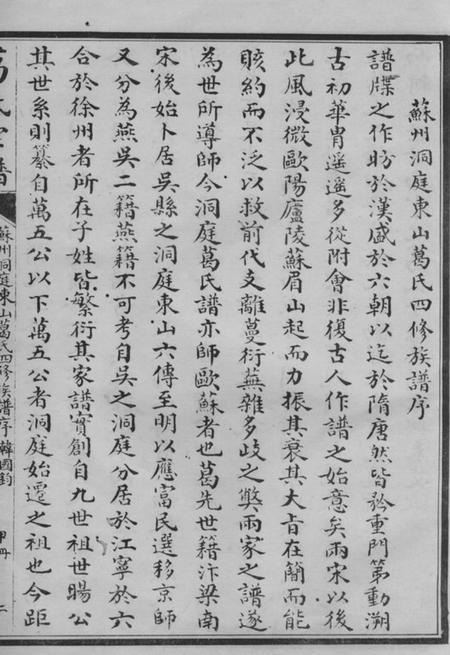 蘇州洞庭東山葛氏四修族譜序
譜牒之作昉於漢盛於六朝以迄於隋唐然皆矜重門第動溯
古初華胄遥遥多從附會非復古人作譜之始意矣兩宋以後
此風浸微歐陽廬陵蘇眉山起而力振其衰其大旨在簡而能
賅約而不泛以救前代支離蔓衍蕪雜多歧之弊兩家之譜遂
為世所導師今洞庭葛氏譜亦師歐蘇者也葛先世籍汴梁南
宋後始卜居吳縣之洞庭東山六傳至明以應富民選移京師
又分為燕吳二籍燕籍不可考自吳之洞庭分居於江寧於六
合於徐州者所在子姓皆繁衍其家譜實創自九世祖世暘公
其世系則纂自萬五公以下萬五公者洞庭始遷之祖也今距
蘇州洞庭東山葛氏四修族譜序 韓國鈞